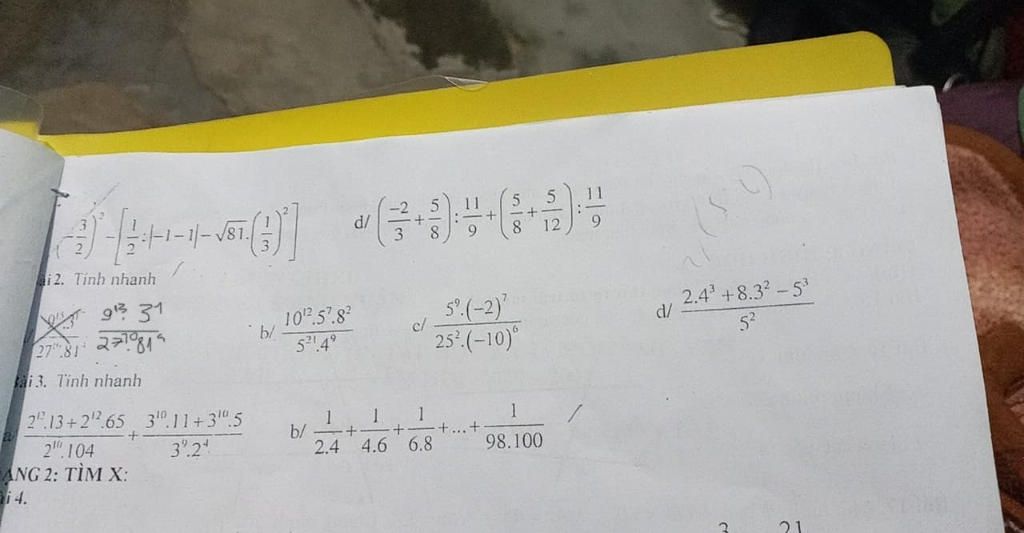 (-3/2)² - [1/2 : |-1-1| - √81.(1/3)²] d/ (-2/3 + 5/8) : 11/9 + (5/8 + 5/12) : 11/9
ài 2. Tính nhanh
9¹³. 3¹ / 27¹⁰.81⁴ b/ 10¹².5⁷.8² / 5²¹.4⁹ c/ 5⁹.(-2)⁷ / 25².(-10)⁶ d/ 2.4³ + 8.3² - 5³ / 5²
ài 3. Tính nhanh
a/ 2¹².13 + 2¹².65 / 2¹⁰.104 + 3¹⁰.11 + 3¹⁰.5 / 3⁹.2⁴ b/ 1/2.4 + 1/4.6 + 1/6.8 + ... + 1/98.100
ẠNG 2: TÌM X:
ài 4.
3 21